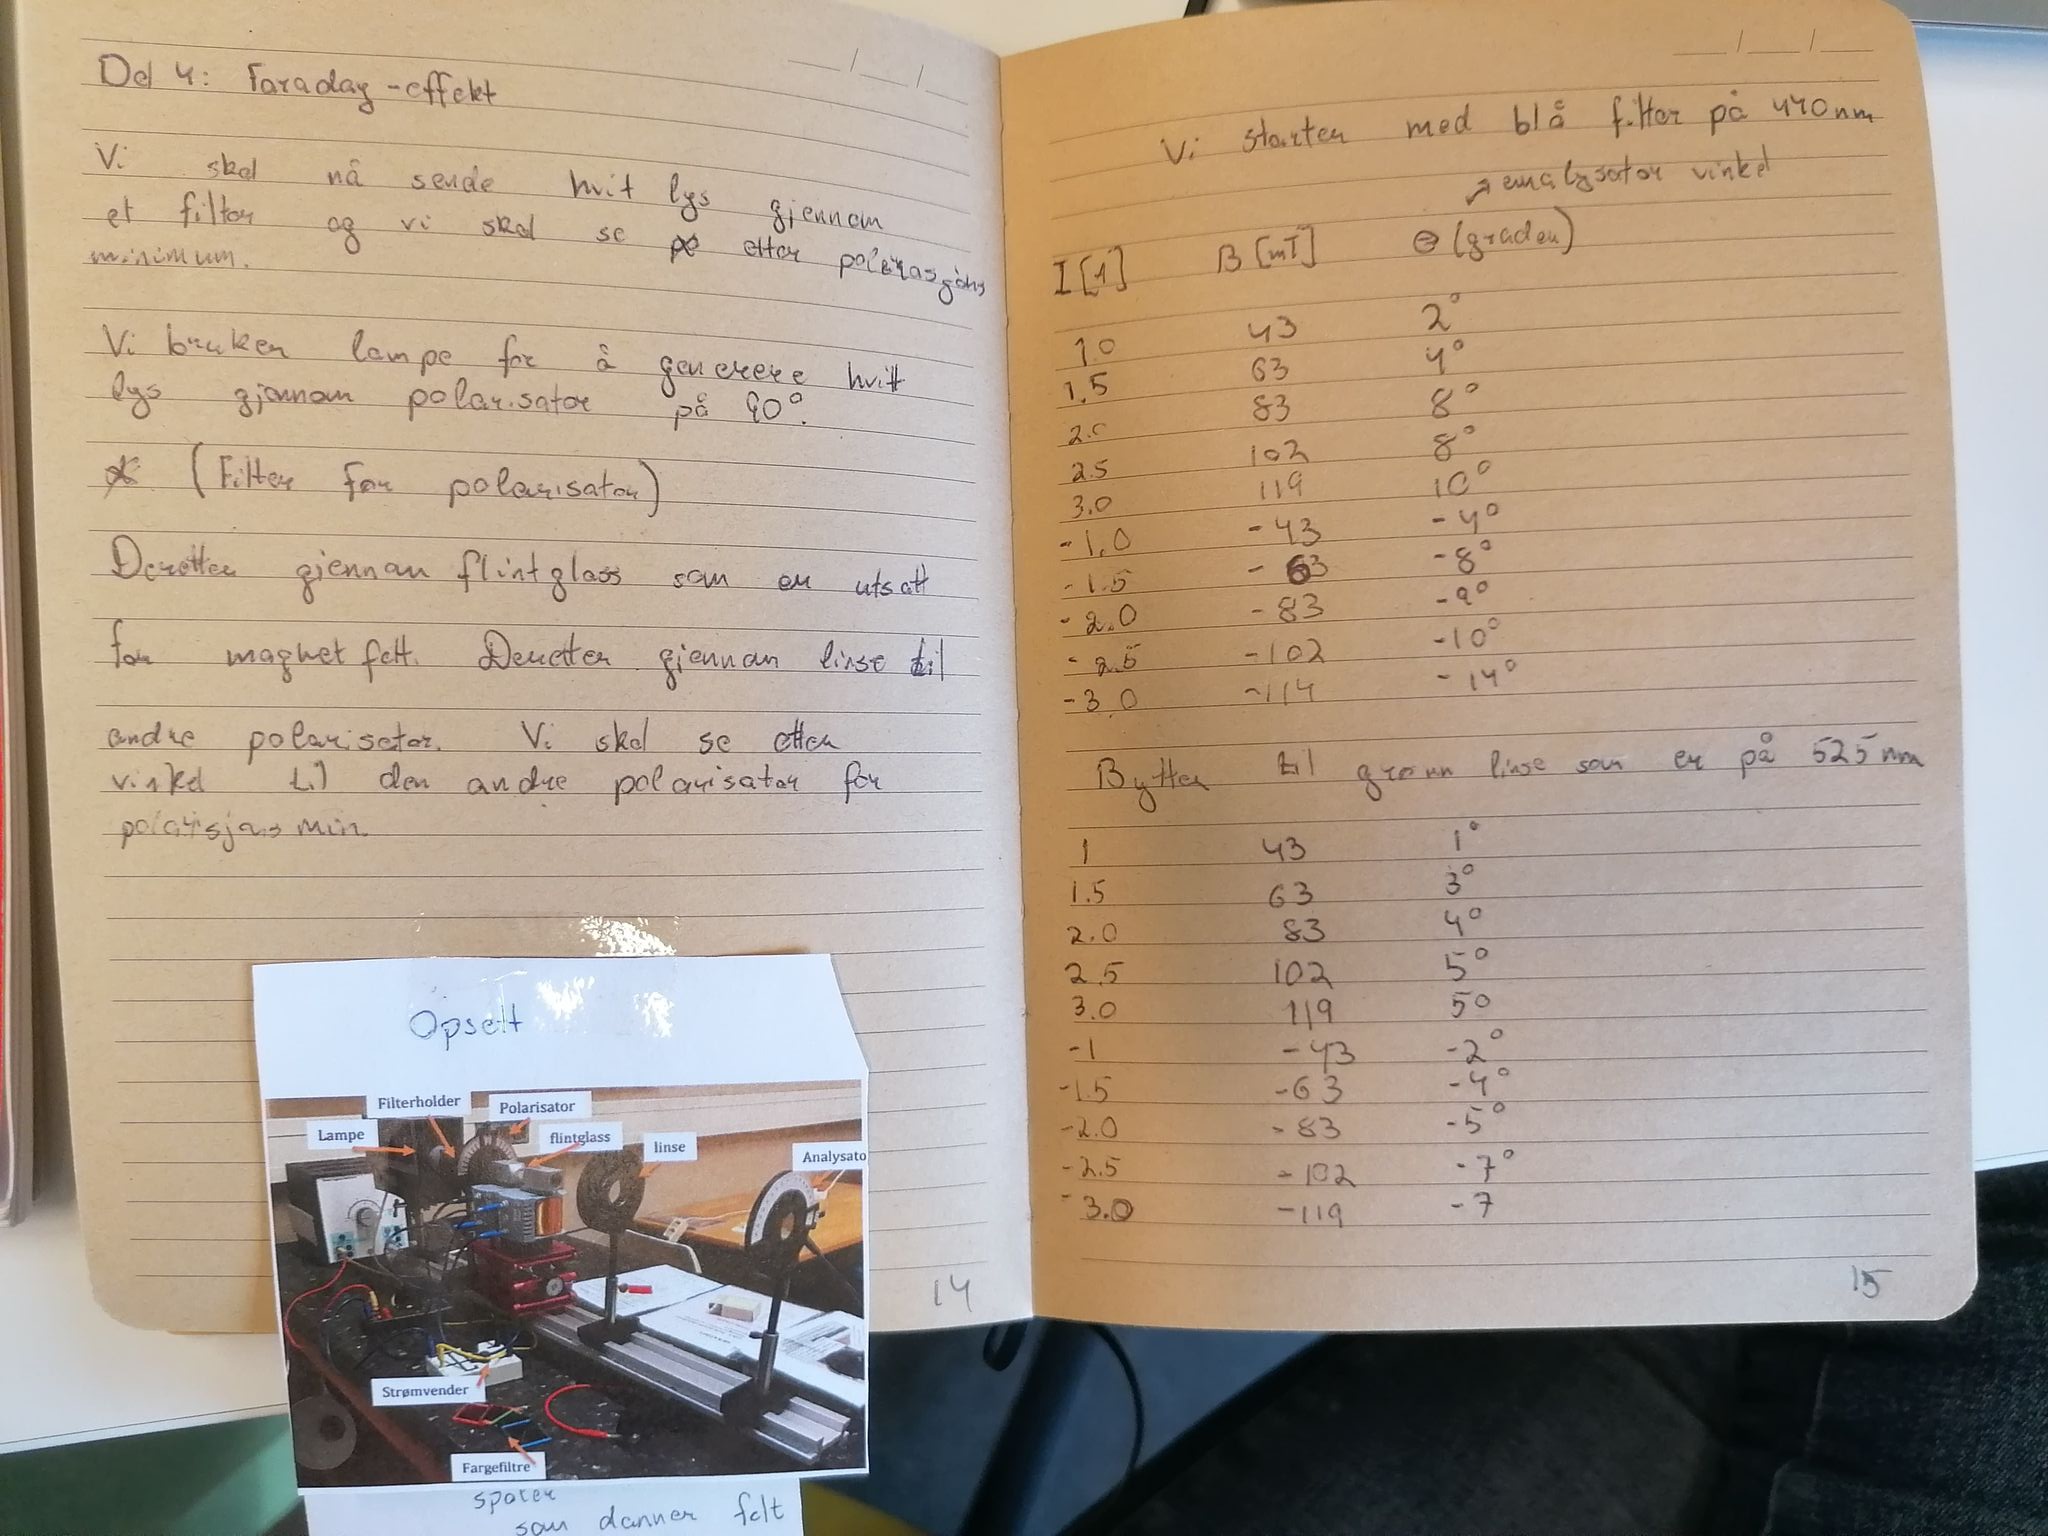 Del 4: Faraday-effekt
Vi skal nå sende hvit lys gjennom
et filter og vi skal se etter polarisasjons
minimum.
Vi bruker lampe for å generere hvit
lys gjennom polarisator på 90°.
(Filter før polarisator)
Deretter gjennom flintglass som er utsatt
for magnetfelt. Deretter gjennom linse til
andre polarisator. Vi skal se etter
vinkel til den andre polarisator for
polarisjons min.
Opsett
Filterholder
Polarisator
Lampe
flintglass
linse
Analysato
Strømvender
Fargefiltre
spoler
som danner felt
14
Vi starter med blå filter på 440nm
→ analysator vinkel
I [1] B [mT] Θ (grader)
1.0 43 2°
1.5 63 4°
2.0 83 8°
2.5 102 8°
3.0 119 10°
-1.0 -43 -4°
-1.5 -63 -8°
-2.0 -83 -9°
-2.5 -102 -10°
-3.0 -114 -14°
Bytter til grønn linse som er på 525nm
1 43 1°
1.5 63 3°
2.0 83 4°
2.5 102 5°
3.0 119 5°
-1 -43 -2°
-1.5 -63 -4°
-2.0 -83 -5°
-2.5 -102 -7°
-3.0 -119 -7
15